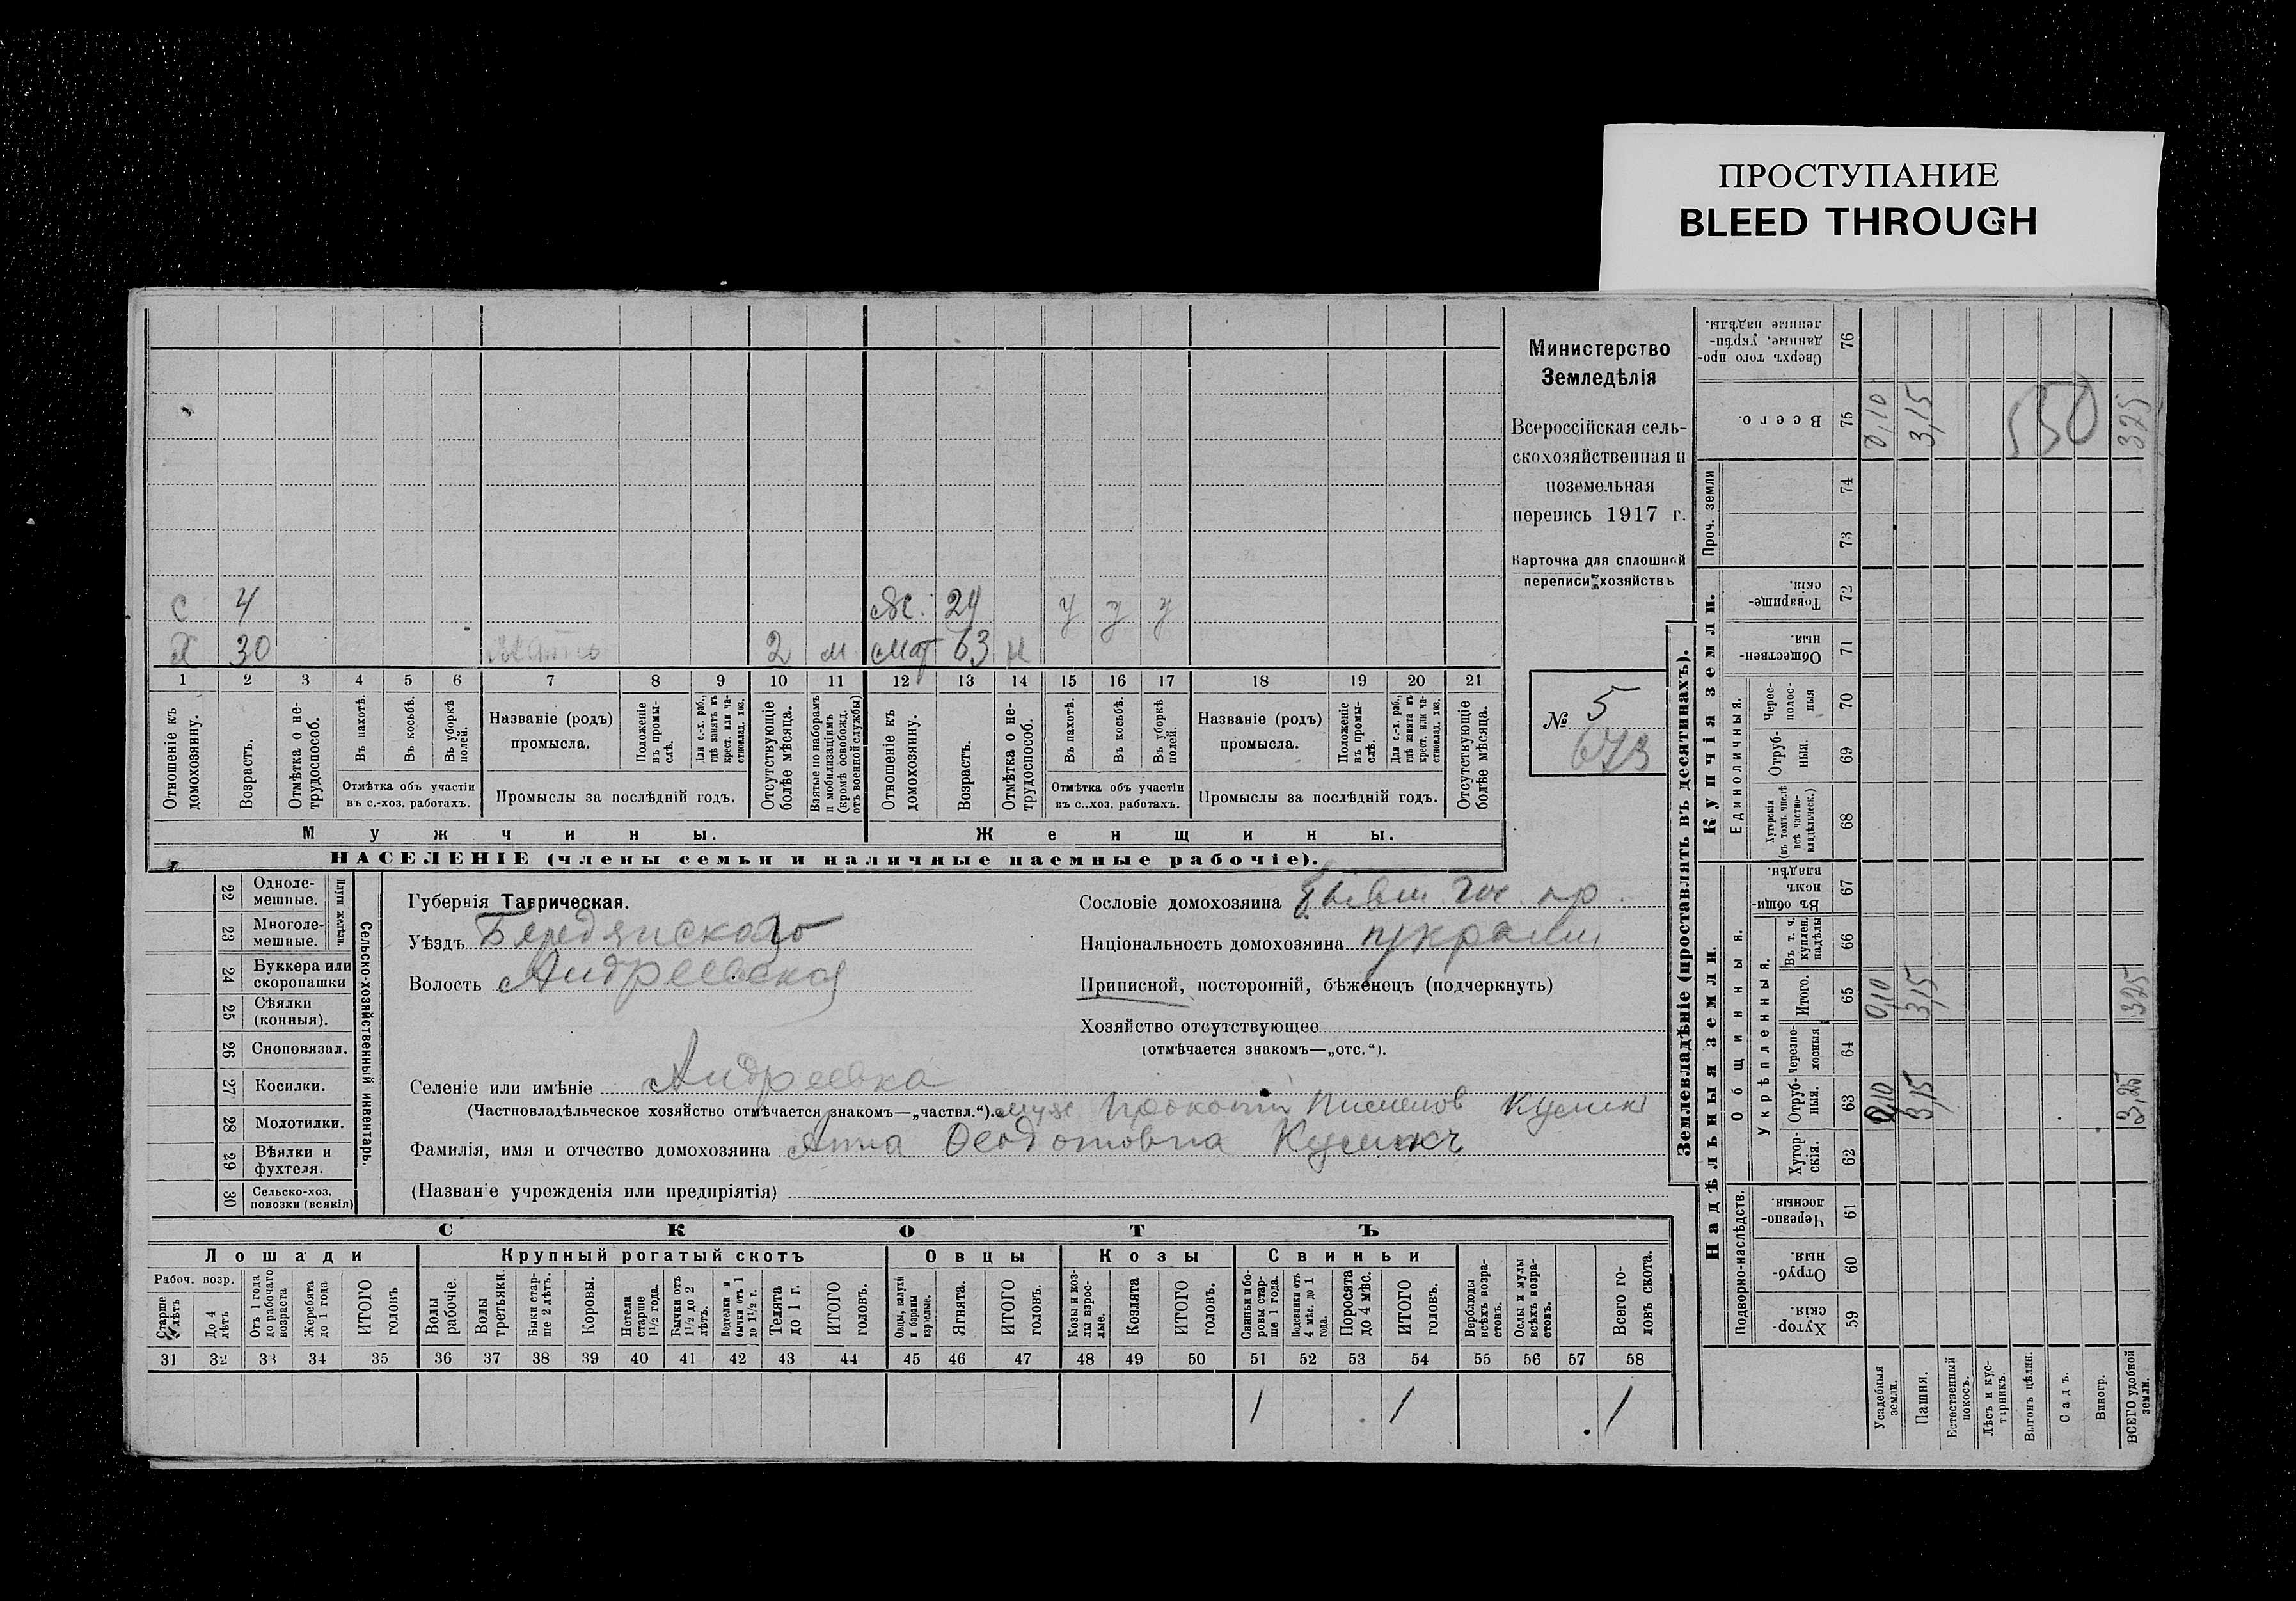 ПРОСТУПАНИЕ
BLEED THROUGH
Министерство
Земледѣлія
Всероссійская сель-
скохозяйственная и
поземельная
перепись 1917 г.
Карточка для сплошной
переписи хозяйствъ
№ 5
673
с 4 Ж. 29 у у у
Х 30 2 м мат 63 н
1 2 3 4 5 6 7 8 9 10 11 12 13 14 15 16 17 18 19 20 21
Отношеніе къ домохозяину.
Возрастъ.
Отмѣтка о нетрудоспособ.
Въ пахотѣ.
Въ косьбѣ.
Въ уборкѣ полей.
Отмѣтка объ участіи
въ с.-хоз. работахъ.
Названіе (родъ)
промысла.
Положеніе въ промыслѣ.
Для с.-х. раб., гдѣ занятъ въ крест. или частновлад. хоз.
Промыслы за послѣдній годъ.
Отсутствующіе болѣе мѣсяца.
Взятые по наборамъ и мобилизаціямъ (кромѣ освобожд. отъ военной службы)
Отношеніе къ домохозяину.
Возрастъ.
Отмѣтка о нетрудоспособ.
Въ пахотѣ.
Въ косьбѣ.
Въ уборкѣ полей.
Отмѣтка объ участіи
въ с.-хоз. работахъ.
Названіе (родъ)
промысла.
Положеніе въ промыслѣ.
Для с.-х. раб., гдѣ занята въ крест. или частновлад. хоз.
Промыслы за послѣдній годъ.
Отсутствующіе болѣе мѣсяца.
Мужчины. Женщины.
НАСЕЛЕНІЕ (члены семьи и наличные наемные рабочіе).
Сельско-хозяйственный инвентарь.
Плуги желѣзн.
22 Одноле-
мешные.
23 Многоле-
мешные.
24 Буккера или
скоропашки
25 Сѣялки
(конныя).
26 Сноповязал.
27 Косилки.
28 Молотилки.
29 Вѣялки и
фухтеля.
30 Сельско-хоз.
повозки (всякія)
Губернія Таврическая.
Уѣздъ Бердянскаго
Волость Андреевская
Сословіе домохозяина бывш. гос. пр.
Національность домохозяина
Приписной, посторонній, бѣженецъ (подчеркнуть)
Хозяйство отсутствующее
(отмѣчается знакомъ—„отс.“).
Селеніе или имѣніе Андреевка
(Частновладѣльческое хозяйство отмѣчается знакомъ—„частвл.“). муж Прокопій Кулик
Фамилія, имя и отчество домохозяина Анна Феодотовна Куликъ
(Названіе учрежденія или предпріятія)
СКОТЪ
Лошади Крупный рогатый скотъ Овцы Козы Свиньи
Рабоч. возр.
Старше лѣтъ
До 4 лѣтъ
Отъ 1 года до рабочаго возраста
Жеребята до 1 года
ИТОГО головъ
Волы рабочіе.
Волы третьяки.
Быки старше 2 лѣтъ.
Коровы.
Нетели старше 1½ года.
Бычки отъ 1½ до 2 лѣтъ.
Подтелки и бычки отъ 1 до 1½ г.
Телята до 1 г.
ИТОГО головъ.
Овцы, валухи и бараны взрослые.
Ягнята.
ИТОГО головъ.
Козы и козлы взрослые.
Козлята
ИТОГО головъ.
Свиньи и боровы старше 1 года.
Подсвинки отъ 4 мѣс. до 1 года.
Поросята до 4 мѣс.
ИТОГО головъ.
Верблюды всѣхъ возрастовъ.
Ослы и мулы всѣхъ возрастовъ.
Всего головъ скота.
31 32 33 34 35 36 37 38 39 40 41 42 43 44 45 46 47 48 49 50 51 52 53 54 55 56 57 58
1 1 1
Землевладѣніе (проставлять въ десятинахъ).
Надѣльныя земли.
Купчія земли.
Проч. земли
Подворно-наслѣдств.
Общинныя.
Укрѣпленныя.
Единоличныя.
Хуторскія. 59
Отрубныя. 60
Черезполосныя. 61
Хуторскія. 62
Отрубныя. 63
Черезполосныя 64
Итого. 65
Въ т. ч. куплен. надѣлы 66
Въ общинномъ владѣн. 67
Хуторскія (въ томъ числѣ всѣ частновладѣльческ.) 68
Отрубныя. 69
Черезполосныя 70
Общественныя. 71
Товарищескія. 72
73
74
Всего. 75
Сверхъ того проданные, укрѣпленные надѣлы. 76
Усадебныя земли. 0,10 0,10 0,10
Пашня. 3,15 3,15 3,15
Естественный покосъ.
Лѣсъ и кустарникъ.
Выгонъ цѣлин.
Садъ.
Виногр.
ВСЕГО удобной земли. 3,25 325 325
530